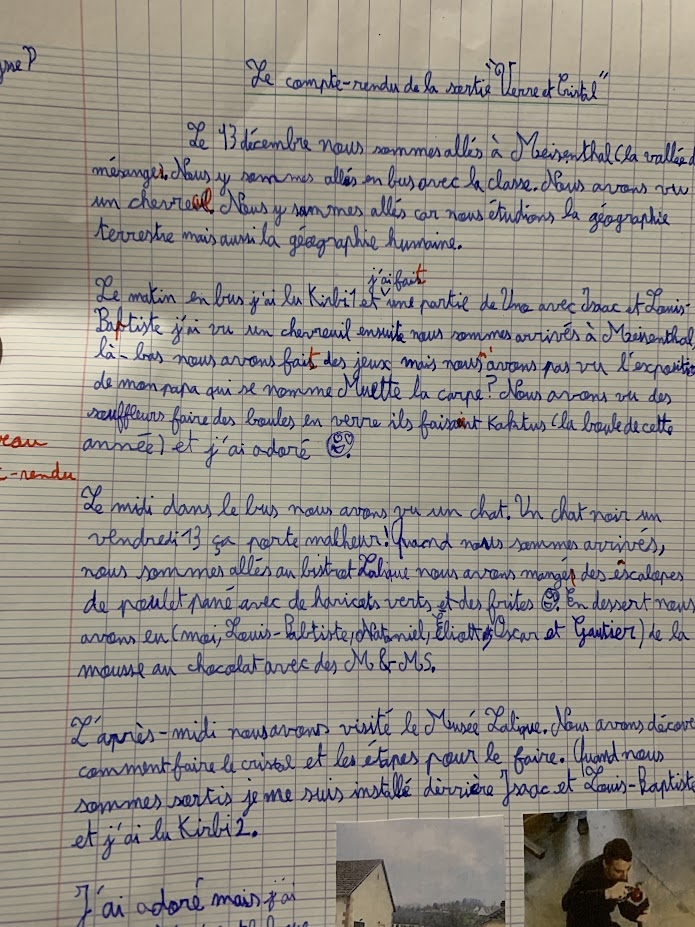 me P
Le compte-rendu de la sortie "Verre et Cristal"
Le 13 décembre nous sommes allés à Meisenthal (la vallée d
mésanges. Nous y sommes allés en bus avec la classe. Nous avons vu
un chevreuil. Nous y sommes allés car nous étudions la géographie
terrestre mais aussi la géographie humaine.
j'ai fait
Le matin en bus j'ai lu Kirbi 1 et une partie de Uno avec Isaac et Louis-
Baptiste j'ai vu un chevreuil ensuite nous sommes arrivés à Meisenthal,
là-bas nous avons fait des jeux mais nous n'avons pas vu l'expositi
de mon papa qui se nomme Muette la carpe? Nous avons vu des
souffleurs faire des boules en verre ils faisaint Kaktus (la boule de cette
année) et j'ai adoré
eau
-rendu
Le midi dans le bus nous avons vu un chat. Un chat noir un
vendredi 13 ça porte malheur! Quand nous sommes arrivés,
nous sommes allés au bistrot Lalique nous avons mangés des escalopes
de poulet pané avec de haricots verts et des frites. En dessert nous
avons eu (moi, Louis-Babtiste, Nataniel, Éliott, Oscar et Gautier) de la
mousse au chocolat avec des M&MS.
L'après-midi nous avons visité le Musée Lalique. Nous avons découve
comment faire le cristal et les étapes pour le faire. Quand nous
sommes sortis je me suis installé dérrière Isaac et Louis-Baptiste
et j'ai lu Kirbi 2.
J'ai adoré mais j'ai